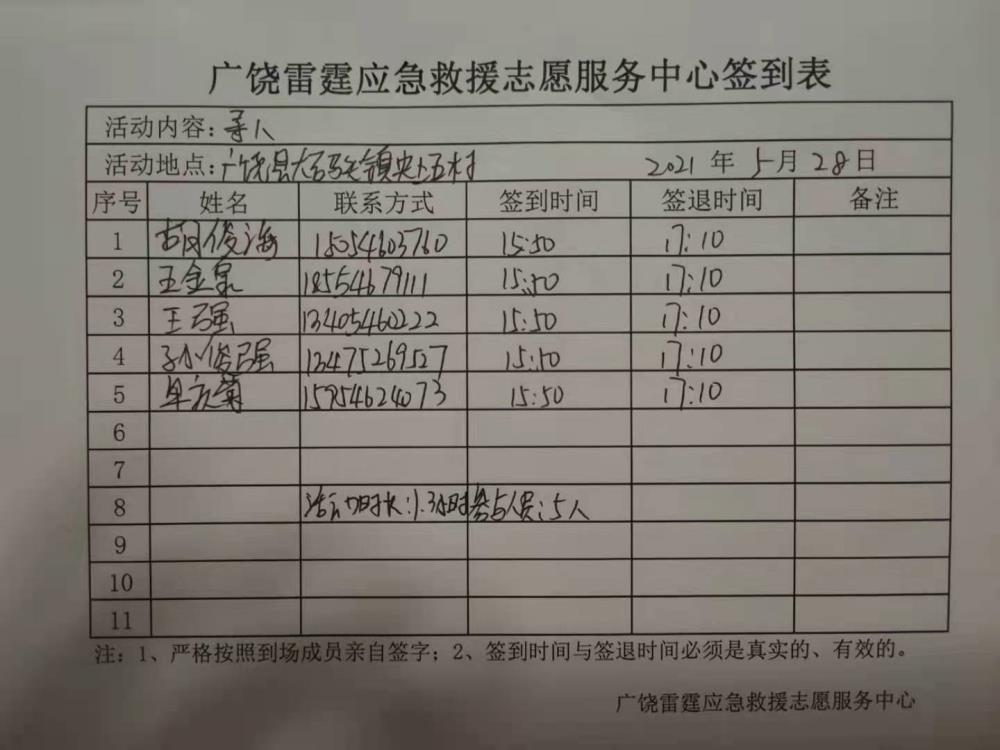 广饶雷霆应急救援志愿服务中心签到表
活动内容：寻人
活动地点：广饶县大码头镇央上五村 2021年5月28日
序号 姓名 联系方式 签到时间 签退时间 备注
1 胡俊海 15054603760 15:50 17:10
2 王金泉 18554679111 15:50 17:10
3 王强 13405460222 15:50 17:10
4 孙俊强 13475269527 15:50 17:10
5 15954624073 15:50 17:10
6
7
8 活动时长：1.3小时 参与人员：5人
9
10
11
注：1、严格按照到场成员亲自签字；2、签到时间与签退时间必须是真实的、有效的。
广饶雷霆应急救援志愿服务中心